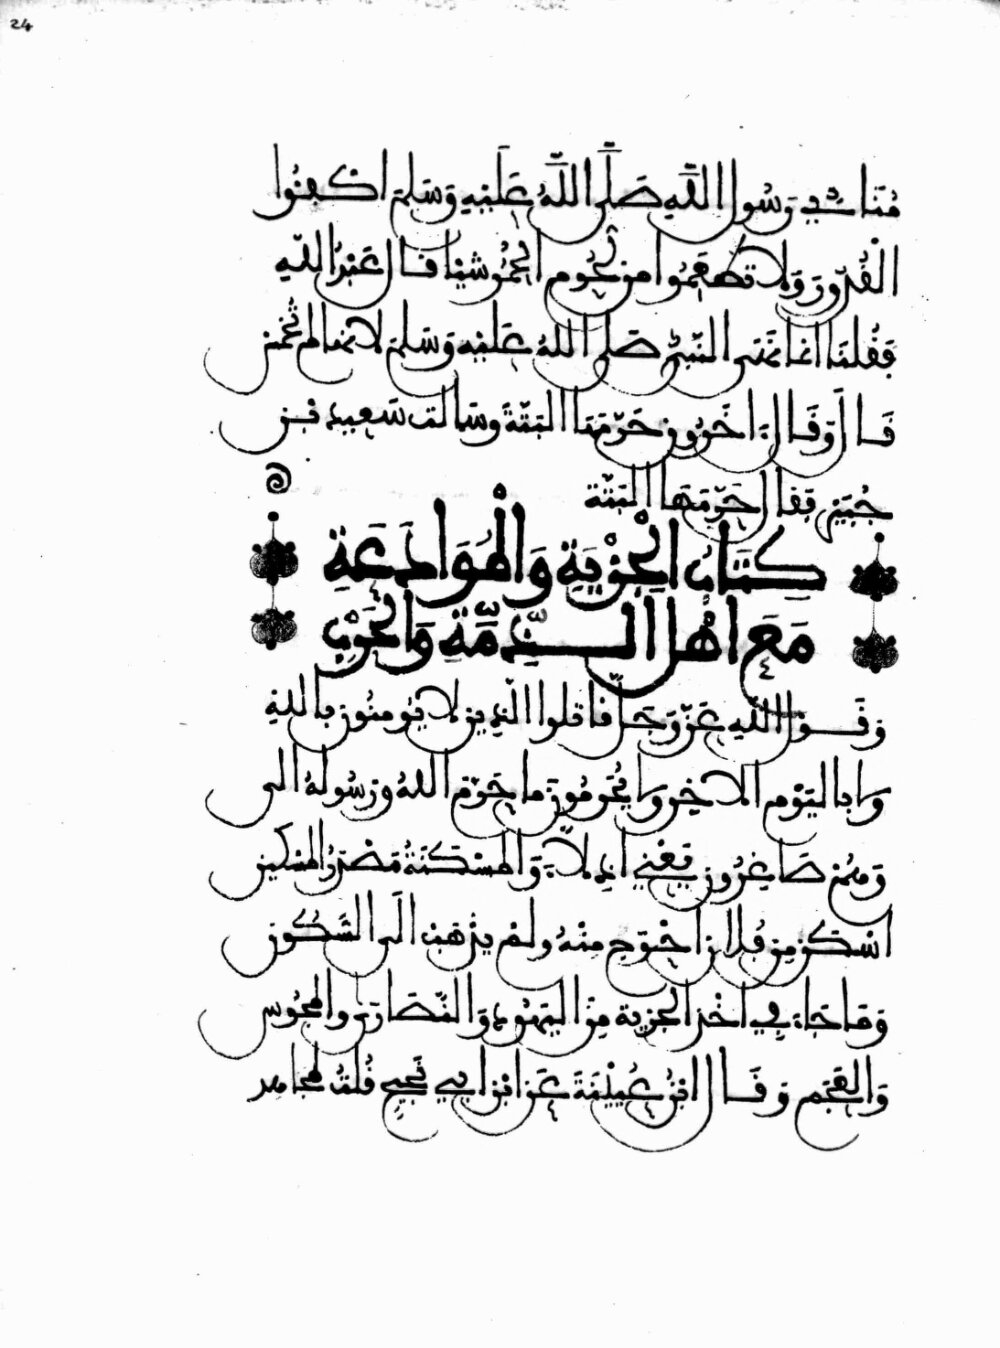 24
مُنَادِي رَسُولِ اللَّهِ صَلَّى اللَّهُ عَلَيْهِ وَسَلَّمَ اكْفِئُوا
الْقُدُورَ وَلَا تَطْعَمُوا مِن لُحُومِ الْحُمُرِ شَيْئًا قَالَ عَبْدُ اللَّهِ
فَقُلْنَا إِنَّمَا نَهَى النَّبِيُّ صَلَّى اللَّهُ عَلَيْهِ وَسَلَّمَ لِأَنَّهَا لَمْ تُخَمَّسْ
قَالَ وَقَالَ آخَرُونَ حَرَّمَهَا الْبَتَّةَ وَسَأَلْتُ سَعِيدَ بْنَ
جُبَيْرٍ فَقَالَ حَرَّمَهَا الْبَتَّةَ
كِتَابُ الْجِزْيَةِ وَالْمُوَادَعَةِ
مَعَ أَهْلِ الذِّمَّةِ وَالْحَرْبِ
وَقَوْلِ اللَّهِ عَزَّ وَجَلَّ قَاتِلُوا الَّذِينَ لَا يُومِنُونَ بِاللَّهِ
وَلَا بِالْيَوْمِ الْآخِرِ وَلَا يُحَرِّمُونَ مَا حَرَّمَ اللَّهُ وَرَسُولُهُ إِلَى
وَهُمْ صَاغِرُونَ يَعْنِي أَذِلَّاءُ وَالْمَسْكَنَةُ مَصْدَرُ الْمِسْكِينِ
أَسْكَنُ مِن فُلَانٍ أَحْوَجُ مِنْهُ وَلَمْ يَذْهَبْ إِلَى السُّكُونِ
وَمَا جَاءَ فِي أَخْذِ الْجِزْيَةِ مِنَ الْيَهُودِ وَالنَّصَارَى وَالْمَجُوسِ
وَالْعَجَمِ وَقَالَ ابْنُ عُيَيْنَةَ عَنِ ابْنِ أَبِي نَجِيحٍ قُلْتُ لِمُجَاهِدٍ